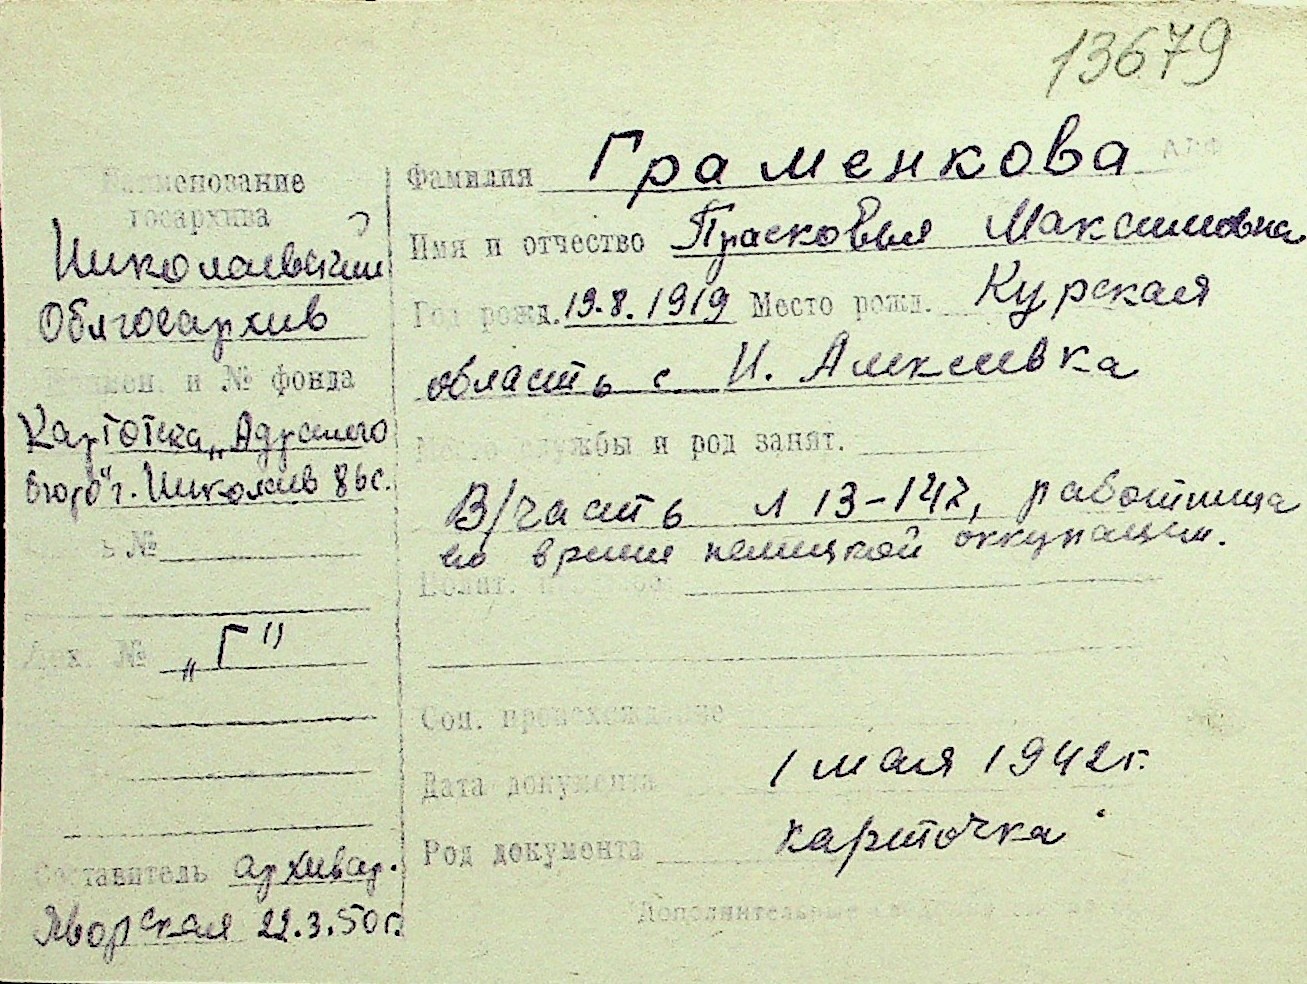 13679
Наименование
госархива
Николаевский
Облгосархив
Наимен. и № фонда
Картотека „Адресного
бюро" г. Николаев 86с.
№
Док. № „Г"
Составитель архивар.
Яворская 22.3.50г.
Фамилия Граменкова
Имя и отчество Прасковья Максимовна
Год рожд. 19.8.1919 Место рожд. Курская
область с Н. Алексеевка
Место службы и род занят.
В/часть Л 13-142, работница
во время немецкой оккупации.
Полит.
Соц. происхождение
Дата документа 1 мая 1942г.
Род документа карточка